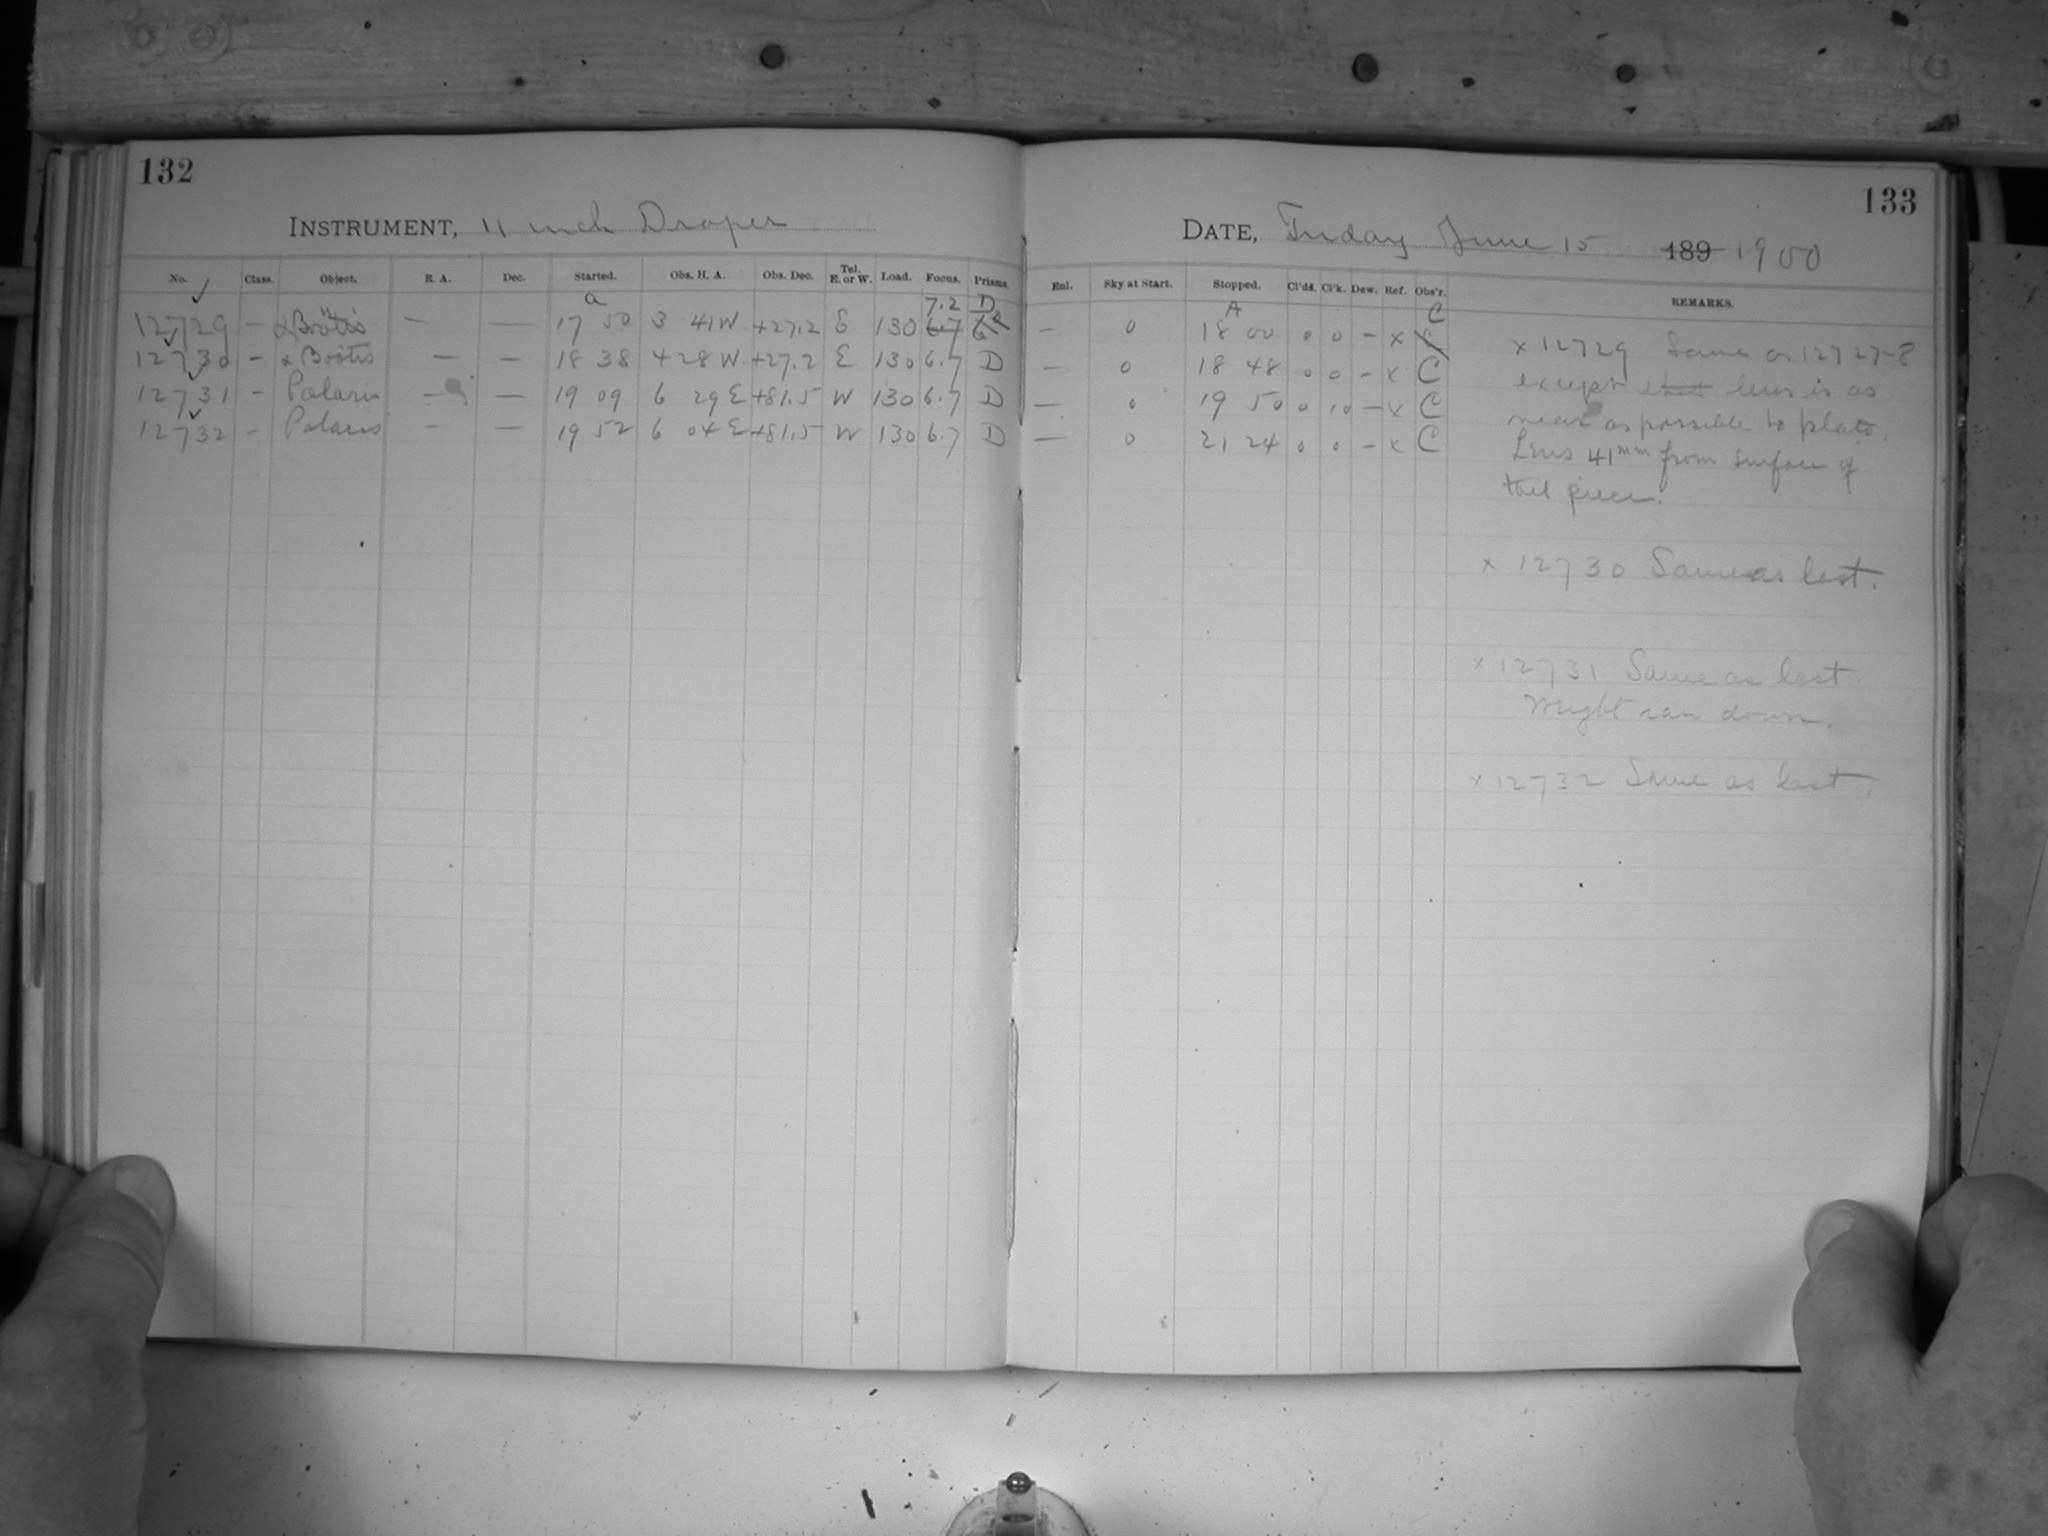 132
INSTRUMENT, 11 inch Draper
No. Class. Object. R. A. Dec. Started. Obs. H. A. Obs. Dec. Tel. E. or W. Load. Focus. Prisms.
a 7.2 D
12729 – α Boötis — — 17 50 3 41 W +27.2 E 130 6.7
12730 – α Boötis — — 18 38 4 28 W +27.2 E 130 6.7 D
12731 – Polaris — — 19 09 6 29 E +81.5 W 130 6.7 D
12732 – Polaris – — 19 52 6 04 E +81.5 W 130 6.7 D
133
DATE, Friday June 15 189 1900
Enl. Sky at Start. Stopped. Cl'ds. Cl'k. Dew. Ref. Obs'r. REMARKS.
A C
— 0 18 00 0 0 – x
— 0 18 48 0 0 – x C
— 0 19 50 0 10 — x C
— 0 21 24 0 0 – x C
x 12729 Same as 12727-8
except that lens is as
near as possible to plate.
Lens 41mm from surface of
tail piece.
x 12730 Same as last.
x 12731 Same as last.
Weight ran down.
x 12732 Same as last.